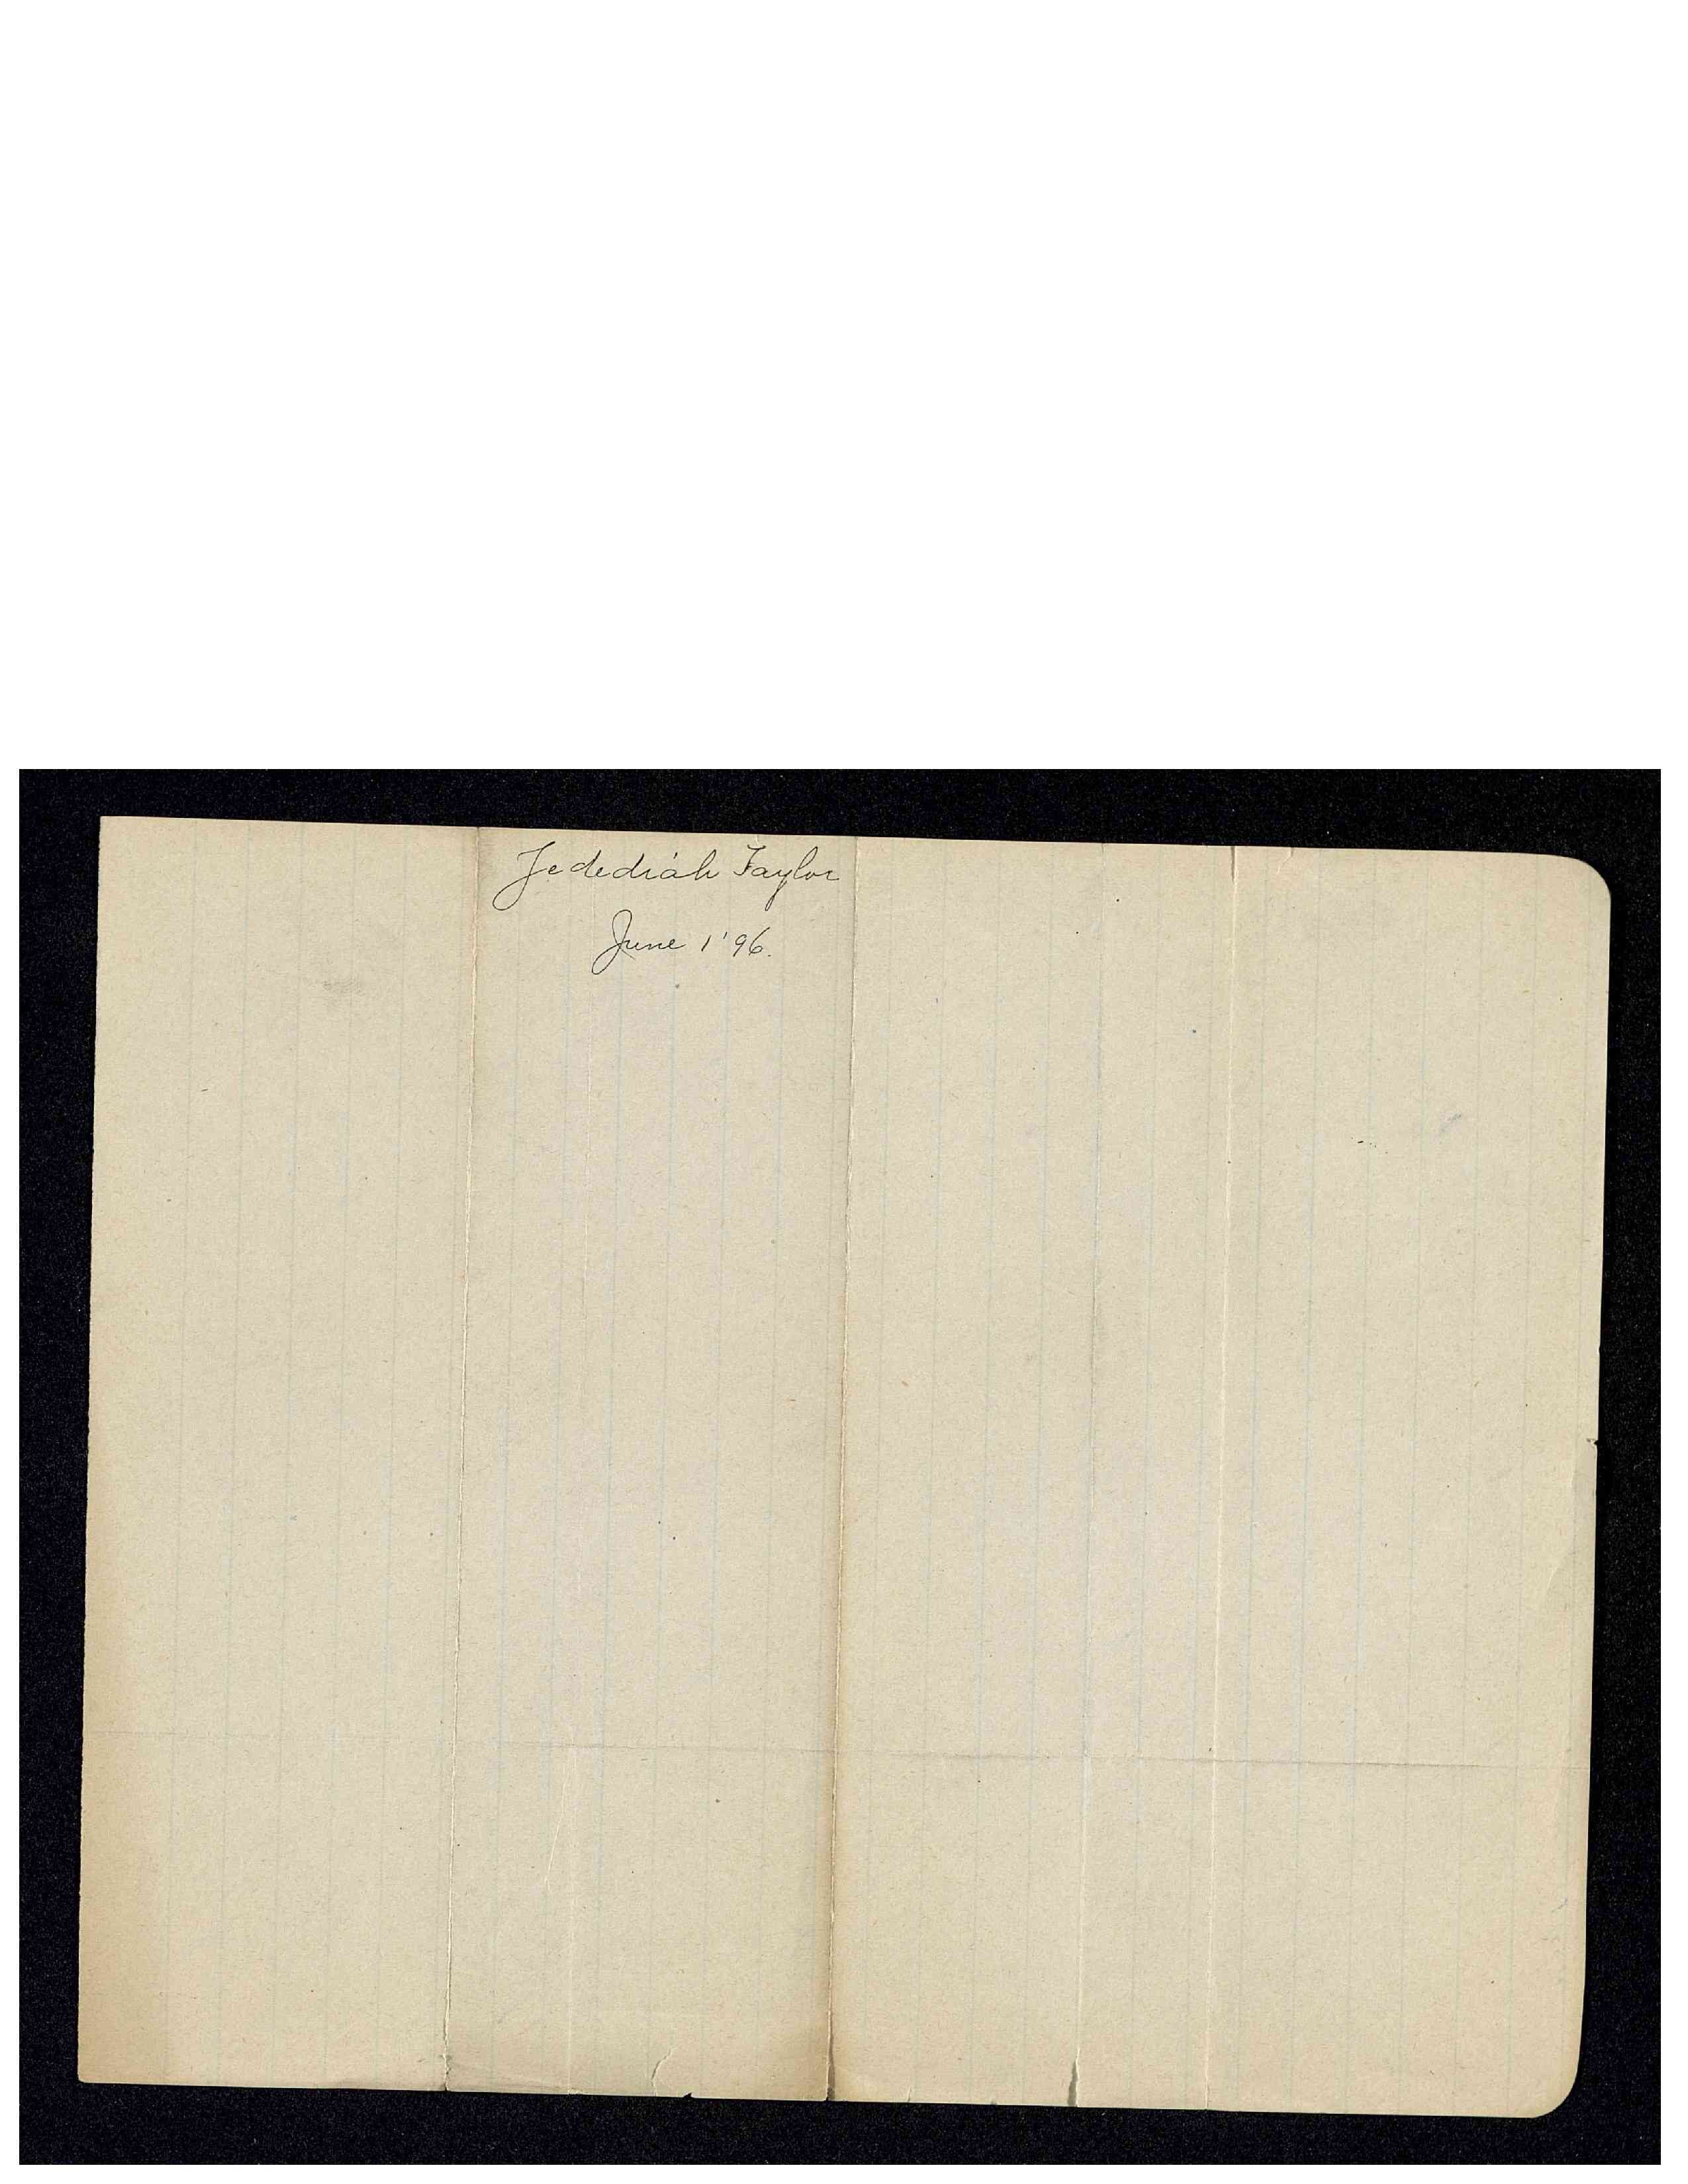 Jedediah Taylor
June 1 '96.